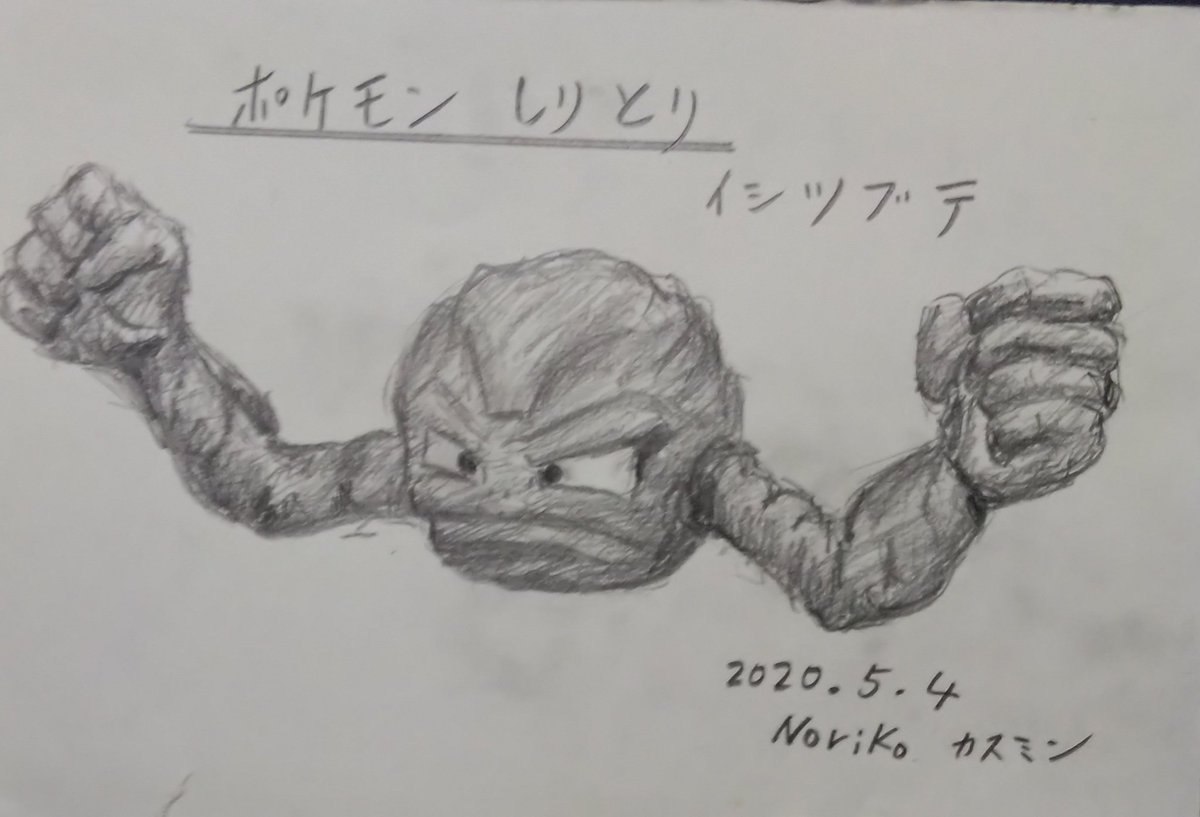 ポケモン しりとり
イシツブテ
2020.5.4
Noriko カスミン